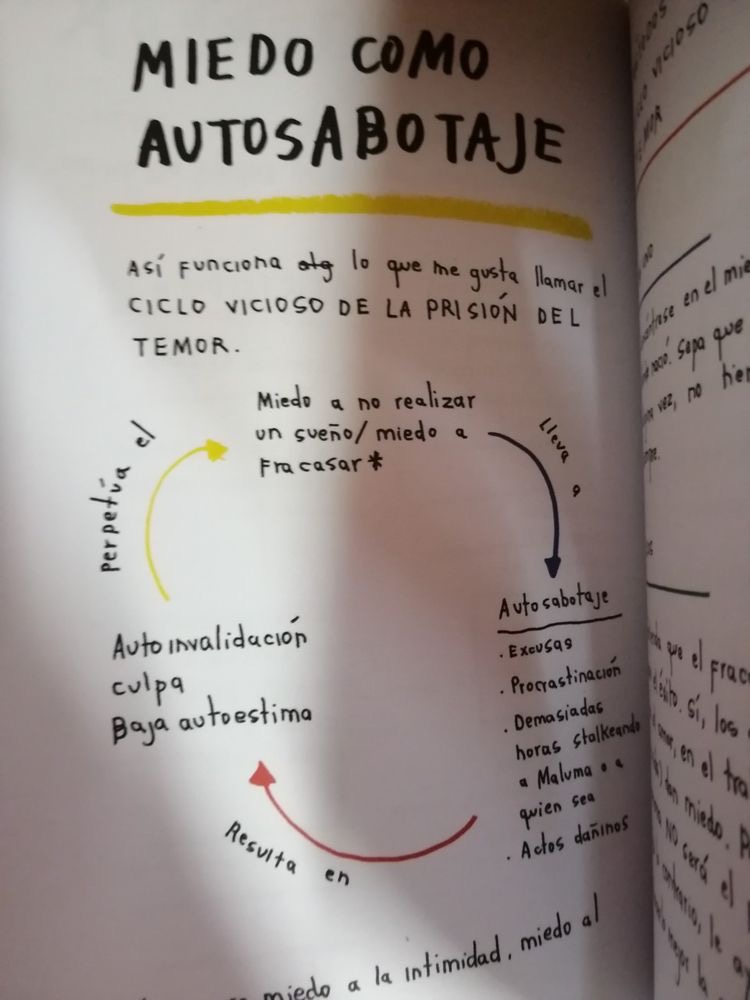 MIEDO COMO
AUTOSABOTAJE
Así funciona alg lo que me gusta llamar el
CICLO VICIOSO DE LA PRISIÓN DEL
TEMOR.
Miedo a no realizar
un sueño/miedo a
fracasar*
lleva a
Autosabotaje
. Excusas
. Procrastinación
. Demasiadas
horas stalkeando
a Maluma o a
quien sea
. Actos dañinos
Resulta en
Autoinvalidación
culpa
Baja autoestima
perpetúa el
miedo a la intimidad, miedo al
VICIOSO
en el mie
nació. Sepa que
vez, no tien
que el frac
éxito. sí, los
amor, en el tra
dan miedo. P
NO será el
contrario, le ay
mejor la